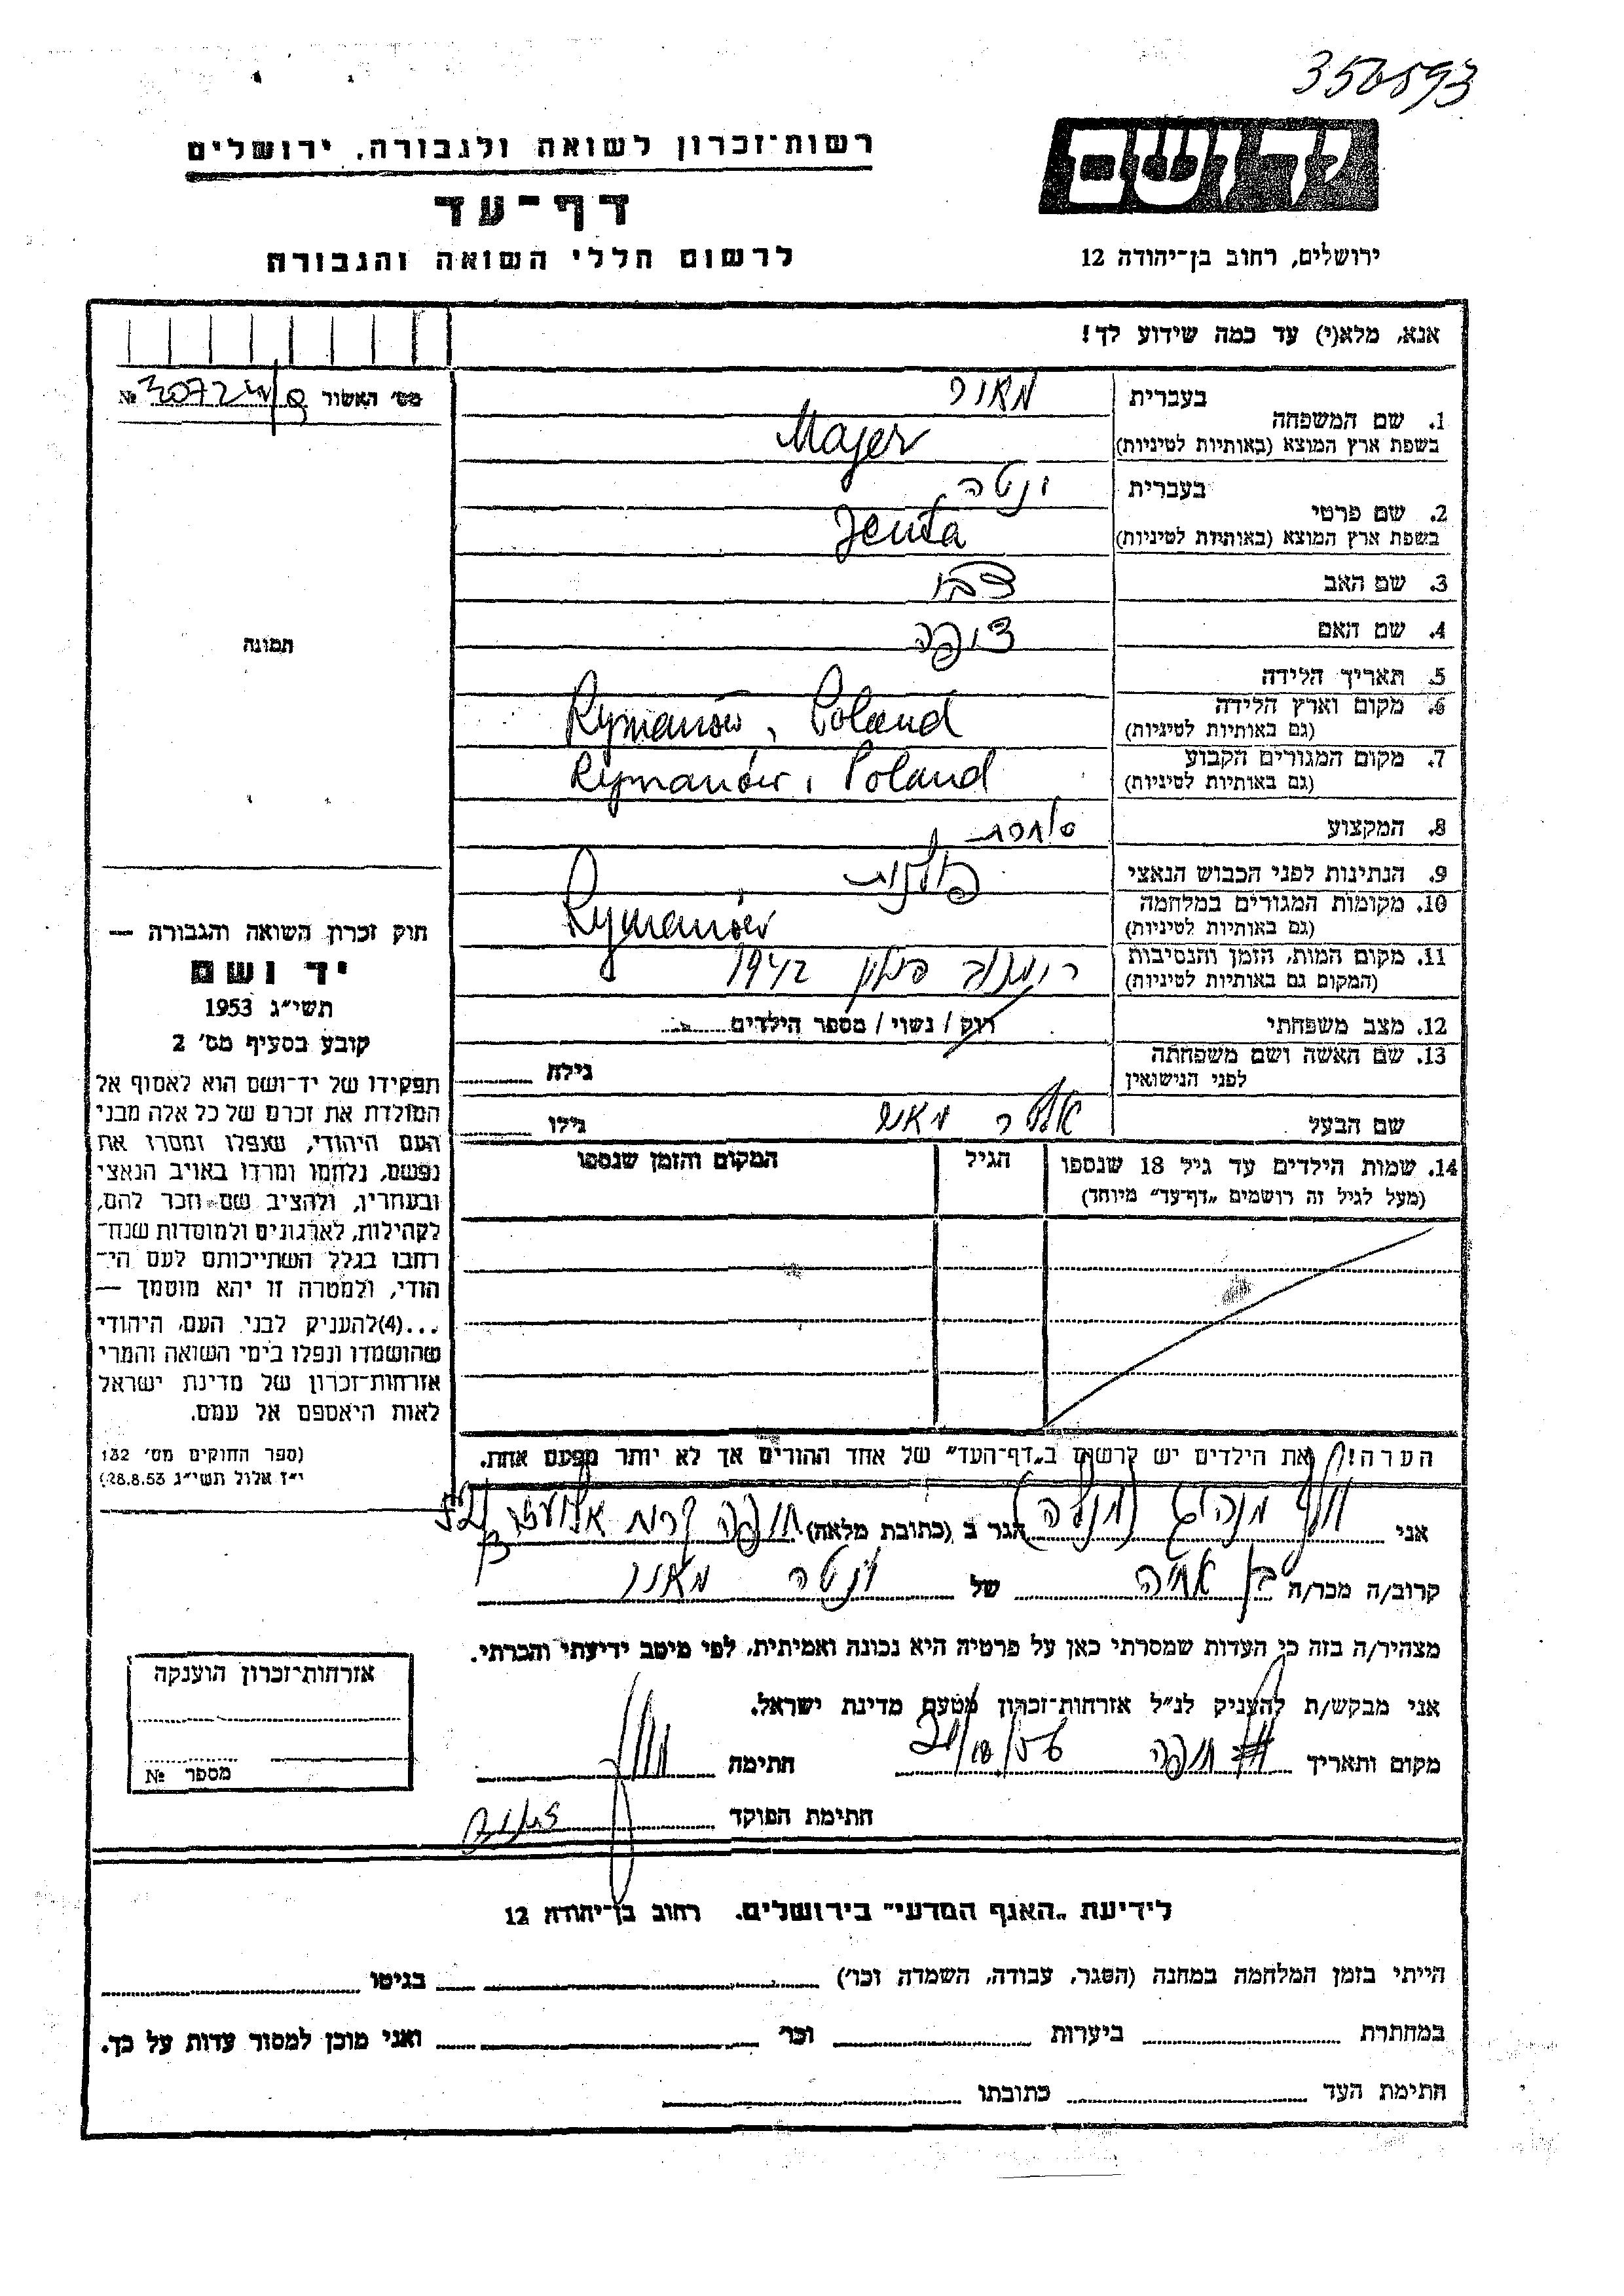 יד ושם
רשות־זכרון לשואה ולגבורה, ירושלים
דף־עד
לרשום חללי השואה והגבורה
ירושלים, רחוב בן־יהודה 12
אנא, מלא(י) עד כמה שידוע לך!
מס׳ האשור №
בעברית
1. שם המשפחה
בשפת ארץ המוצא (באותיות לטיניות) Majer
בעברית ינטה
2. שם פרטי
בשפת ארץ המוצא (באותיות לטיניות) Jenta
3. שם האב צבי
4. שם האם
5. תאריך הלידה
6. מקום וארץ הלידה Rymanów, Poland
(גם באותיות לטיניות)
7. מקום המגורים הקבוע Rymanów, Poland
(גם באותיות לטיניות)
8. המקצוע
9. הנתינות לפני הכבוש הנאצי פולנית
10. מקומות המגורים במלחמה Rymanów
(גם באותיות לטיניות)
11. מקום המות, הזמן והנסיבות רימנוב פולין 1942
(המקום גם באותיות לטיניות)
12. מצב משפחתי רוק / נשוי / מספר הילדים
13. שם האשה ושם משפחתה גילה
לפני הנישואין
שם הבעל גילו
14. שמות הילדים עד גיל 18 שנספו הגיל המקום והזמן שנספו
(מעל לגיל זה רושמים „דף־עד״ מיוחד)
הערה! את הילדים יש לרשום ב„דף־העד״ של אחד ההורים אך לא יותר מפעם אחת.
תמונה
חוק זכרון השואה והגבורה —
יד ושם
תשי״ג 1953
קובע בסעיף מס׳ 2
תפקידו של יד־ושם הוא לאסוף אל
המולדת את זכרם של כל אלה מבני
העם היהודי, שנפלו ומסרו את
נפשם, נלחמו ומרדו באויב הנאצי
ובעוזריו, ולהציב שם וזכר להם,
לקהילות, לארגונים ולמוסדות שנח־
רבו בגלל השתייכותם לעם הי־
הודי, ולמטרה זו יהא מוסמך —
...(4)להעניק לבני העם היהודי
שהושמדו ונפלו בימי השואה והמרי
אזרחות־זכרון של מדינת ישראל
לאות היאספם אל עמם.
(ספר החוקים מס׳ 132
י״ז אלול תשי״ג 28.8.53)
אני הגר ב (כתובת מלאה) חיפה
קרוב/ה מכר/ה של ינטה
מצהיר/ה בזה כי העדות שמסרתי כאן על פרטיה היא נכונה ואמיתית, לפי מיטב ידיעתי והכרתי.
אני מבקש/ת להעניק לנ״ל אזרחות־זכרון מטעם מדינת ישראל.
מקום ותאריך חיפה חתימה
חתימת הפוקד
אזרחות־זכרון הוענקה
מספר №
לידיעת „האגף המדעי״ בירושלים. רחוב בן־יהודה 12
הייתי בזמן המלחמה במחנה (הסגר, עבודה, השמדה וכו׳) בגיטו
במחתרת ביערות וכו׳ ואני מוכן למסור עדות על כך.
חתימת העד כתובתו